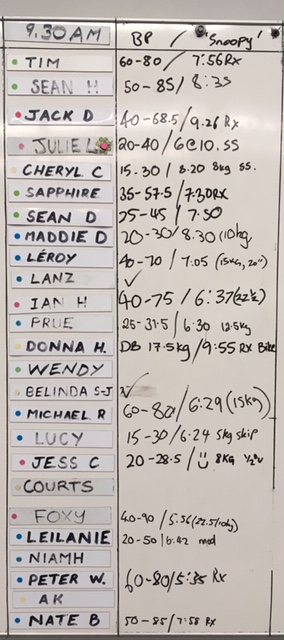 9.30AM BP / 'Snoopy'
TIM 60-80 / 7:56Rx
SEAN H 50-85 / 8:35
JACK D 40-68.5 / 9.26 Rx
JULIE L 20-40 / 6@10.SS
CHERYL C 15.30 / 8.20 8kg SS.
SAPPHIRE 35-57.5 / 7.30RX
SEAN D 25-45 / 7:50
MADDIE D 20-30 / 8.30 (10kg,
LEROY 40-70 / 7:05 (15kg, 20")
LANZ ✓
IAN H 40-75 / 6:37
PRUE 25-31.5 / 6:30 12.5kg
DONNA H. DB 17.5kg / 9:55 RX Bike
WENDY
BELINDA S-J ✓
MICHAEL R 60-80 / 6:29 (15kg)
LUCY 15-30 / 6.24 5kg skip
JESS C 20-28.5 / 8KG
COURTS
FOXY 40-90 /
LEILANIE 20-50 / 6:42 mod
NIAMH
PETER W. 60-80 / 5:35 Rx
AK
NATE B 50-85 / 7:58 Rx